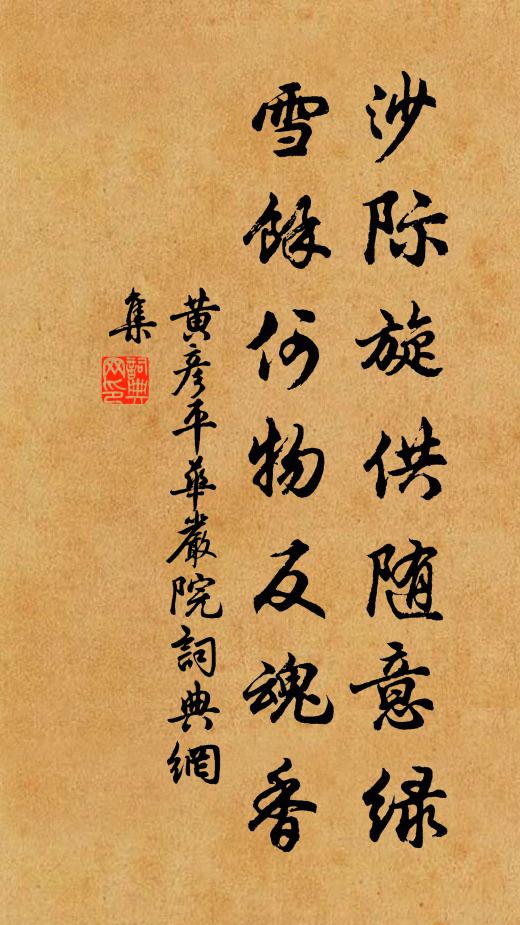 沙际旋供随意绿
雪馀何物反魂香
黄彦平华严院词典網
集
詞典
网印